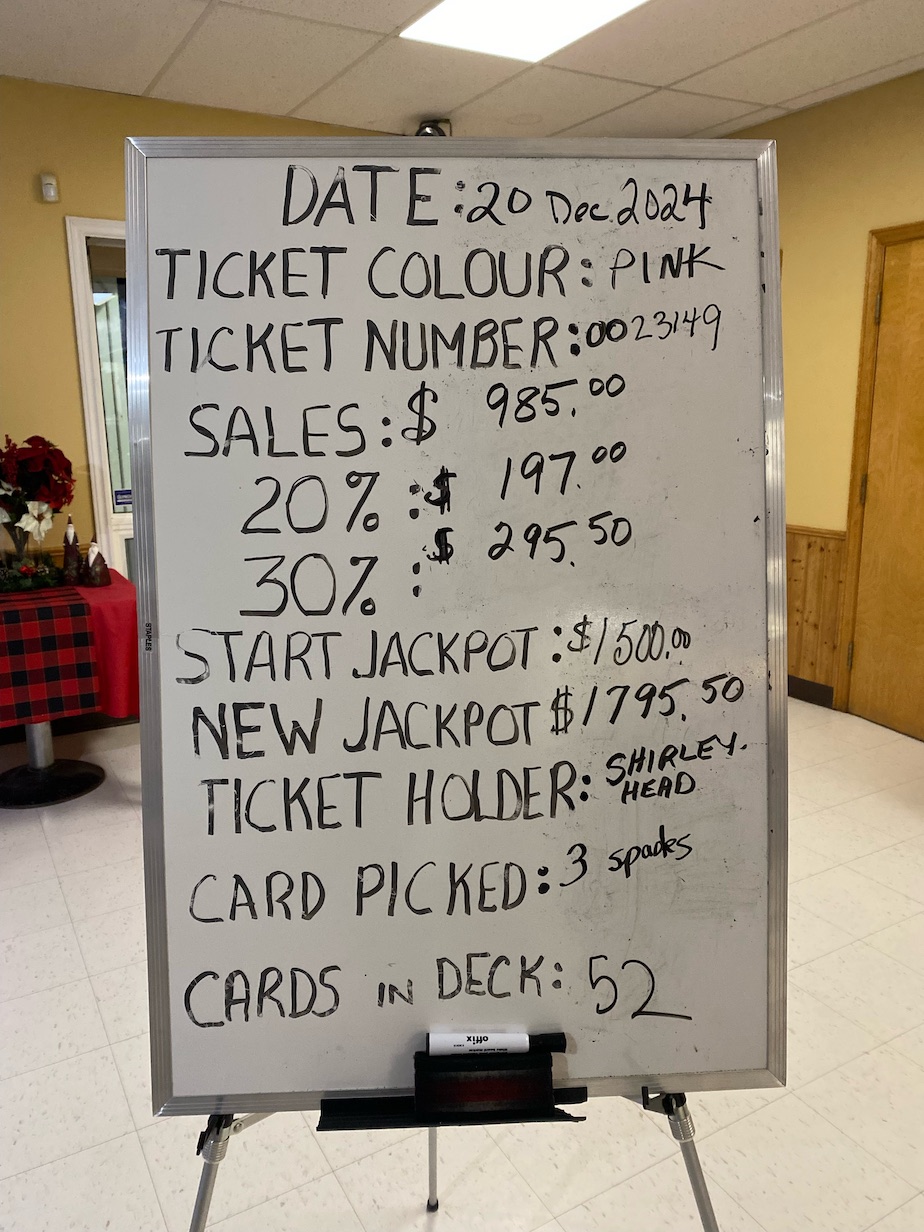 DATE: 20 Dec. 2024
TICKET COLOUR: PINK
TICKET NUMBER: 0023149
SALES: $ 985.00
20% : $ 197.00
30% : $ 295.50
START JACKPOT: $1500.00
NEW JACKPOT $1795.50
TICKET HOLDER: SHIRLEY.
HEAD
CARD PICKED: 3 spades
CARDS IN DECK: 52
STAPLES
offix